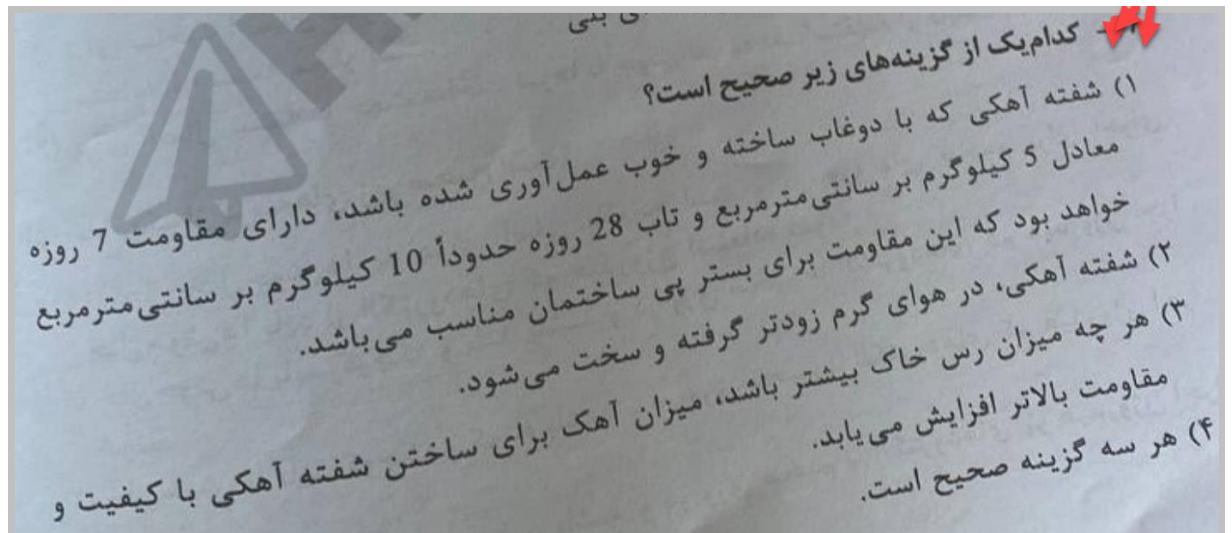 ی بنی
- کدام‌یک از گزینه‌های زیر صحیح است؟
۱) شفته آهکی که با دوغاب ساخته و خوب عمل‌آوری شده باشد، دارای مقاومت 7 روزه
معادل 5 کیلوگرم بر سانتی‌مترمربع و تاب 28 روزه حدوداً 10 کیلوگرم بر سانتی‌مترمربع
خواهد بود که این مقاومت برای بستر پی ساختمان مناسب می‌باشد.
۲) شفته آهکی، در هوای گرم زودتر گرفته و سخت می‌شود.
۳) هر چه میزان رس خاک بیشتر باشد، میزان آهک برای ساختن شفته آهکی با کیفیت و
مقاومت بالاتر افزایش می‌یابد.
۴) هر سه گزینه صحیح است.